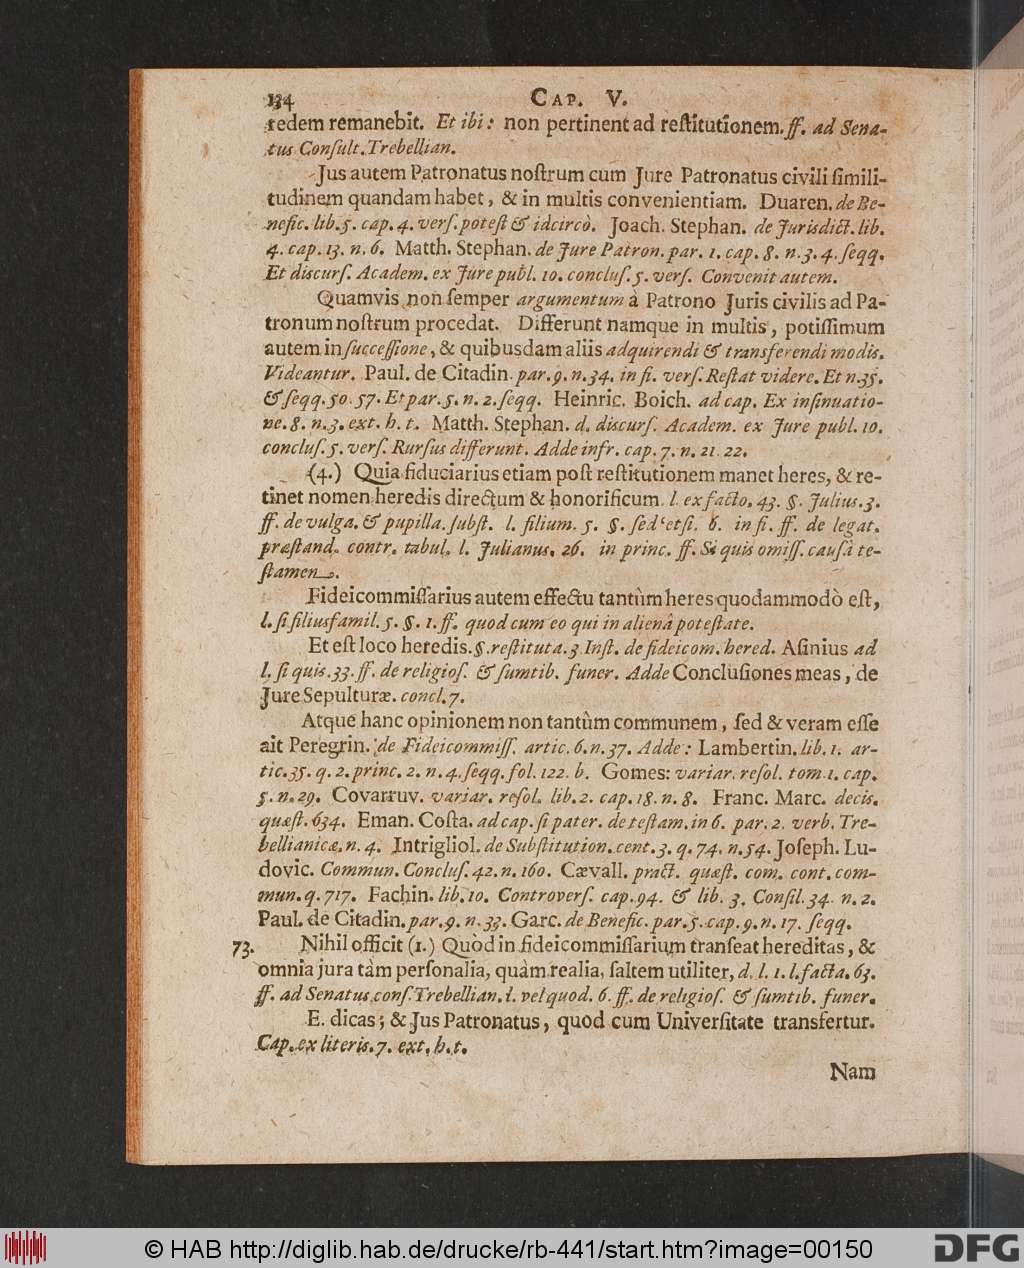 134 CAP. V.
redem remanebit. Et ibi: non pertinent ad reſtitutionem. ff. ad Sena-
tus Conſult. Trebellian.
Jus autem Patronatus noſtrum cum Jure Patronatus civili ſimili-
tudinem quandam habet, & in multis convenientiam. Duaren. de Be-
nefic. lib. 5. cap. 4. verſ. poteſt & idcircò. Joach. Stephan. de Jurisdict. lib.
4. cap. 13. n. 6. Matth. Stephan. de Jure Patron. par. 1. cap. 8. n. 3. 4. ſeqq.
Et diſcurſ. Academ. ex Jure publ. 10. concluſ. 5. verſ. Convenit autem.
Quamvis non ſemper argumentum à Patrono Juris civilis ad Pa-
tronum noſtrum procedat. Differunt namque in multis, potiſſimum
autem in ſucceſſione, & quibusdam aliis adquirendi & transferendi modis.
Videantur. Paul. de Citadin. par. 9. n. 34. in fi. verſ. Reſtat videre. Et n. 35.
& ſeqq. 50. 57. Et par. 5. n. 2. ſeqq. Heinric. Boich. ad cap. Ex inſinuatio-
ne. 8. n. 3. ext. h. t. Matth. Stephan. d. diſcurſ. Academ. ex Jure publ. 10.
concluſ. 5. verſ. Rurſus differunt. Adde infr. cap. 7. n. 21. 22.
(4.) Quia fiduciarius etiam poſt reſtitutionem manet heres, & re-
tinet nomen heredis directum & honorificum. l. ex facto. 43. §. Julius. 3.
ff. de vulga. & pupilla. ſubſt. l. filium. 5. §. ſed etſi. 6. in fi. ff. de legat.
præſtand. contr. tabul. l. Julianus. 26. in princ. ff. Si quis omiſſ. cauſâ te-
ſtamen.
Fideicommiſſarius autem effectu tantùm heres quodammodò eſt,
l. ſi filiusfamil. 5. §. 1. ff. quod cum eo qui in alienâ poteſtate.
Et eſt loco heredis. §. reſtituta. 3. Inſt. de fideicom. hered. Aſinius ad
l. ſi quis. 33. ff. de religioſ. & ſumtib. funer. Adde Concluſiones meas, de
Jure Sepulturæ. concl. 7.
Atque hanc opinionem non tantùm communem, ſed & veram eſſe
ait Peregrin. de Fideicommiſſ. artic. 6. n. 37. Adde: Lambertin. lib. 1. ar-
tic. 35. q. 2. princ. 2. n. 4. ſeqq. fol. 122. b. Gomes: variar. reſol. tom. 1. cap.
5. n. 29. Covarruv. variar. reſol. lib. 2. cap. 18. n. 8. Franc. Marc. decis.
quæſt. 634. Eman. Coſta. ad cap. ſi pater. de teſtam. in 6. par. 2. verb. Tre-
bellianicæ. n. 4. Intrigliol. de Subſtitution. cent. 3. q. 74. n. 54. Joſeph. Lu-
dovic. Commun. Concluſ. 42. n. 160. Cævall. pract. quæſt. com. cont. com-
mun. q. 717. Fachin. lib. 10. Controverſ. cap. 94. & lib. 3. Conſil. 34. n. 2.
Paul. de Citadin. par. 9. n. 33. Garc. de Benefic. par. 5. cap. 9. n. 17. ſeqq.
73. Nihil officit (1.) Quòd in fideicommiſſarium tranſeat hereditas, &
omnia jura tàm perſonalia, quàm realia, ſaltem utiliter, d. l. 1. l. facta. 63.
ff. ad Senatus conſ. Trebellian. l. vel quod. 6. ff. de religioſ. & ſumtib. funer.
E. dicas; & Jus Patronatus, quod cum Univerſitate transfertur.
Cap. ex literis. 7. ext. h. t.
Nam
© HAB http://diglib.hab.de/drucke/rb-441/start.htm?image=00150
DFG